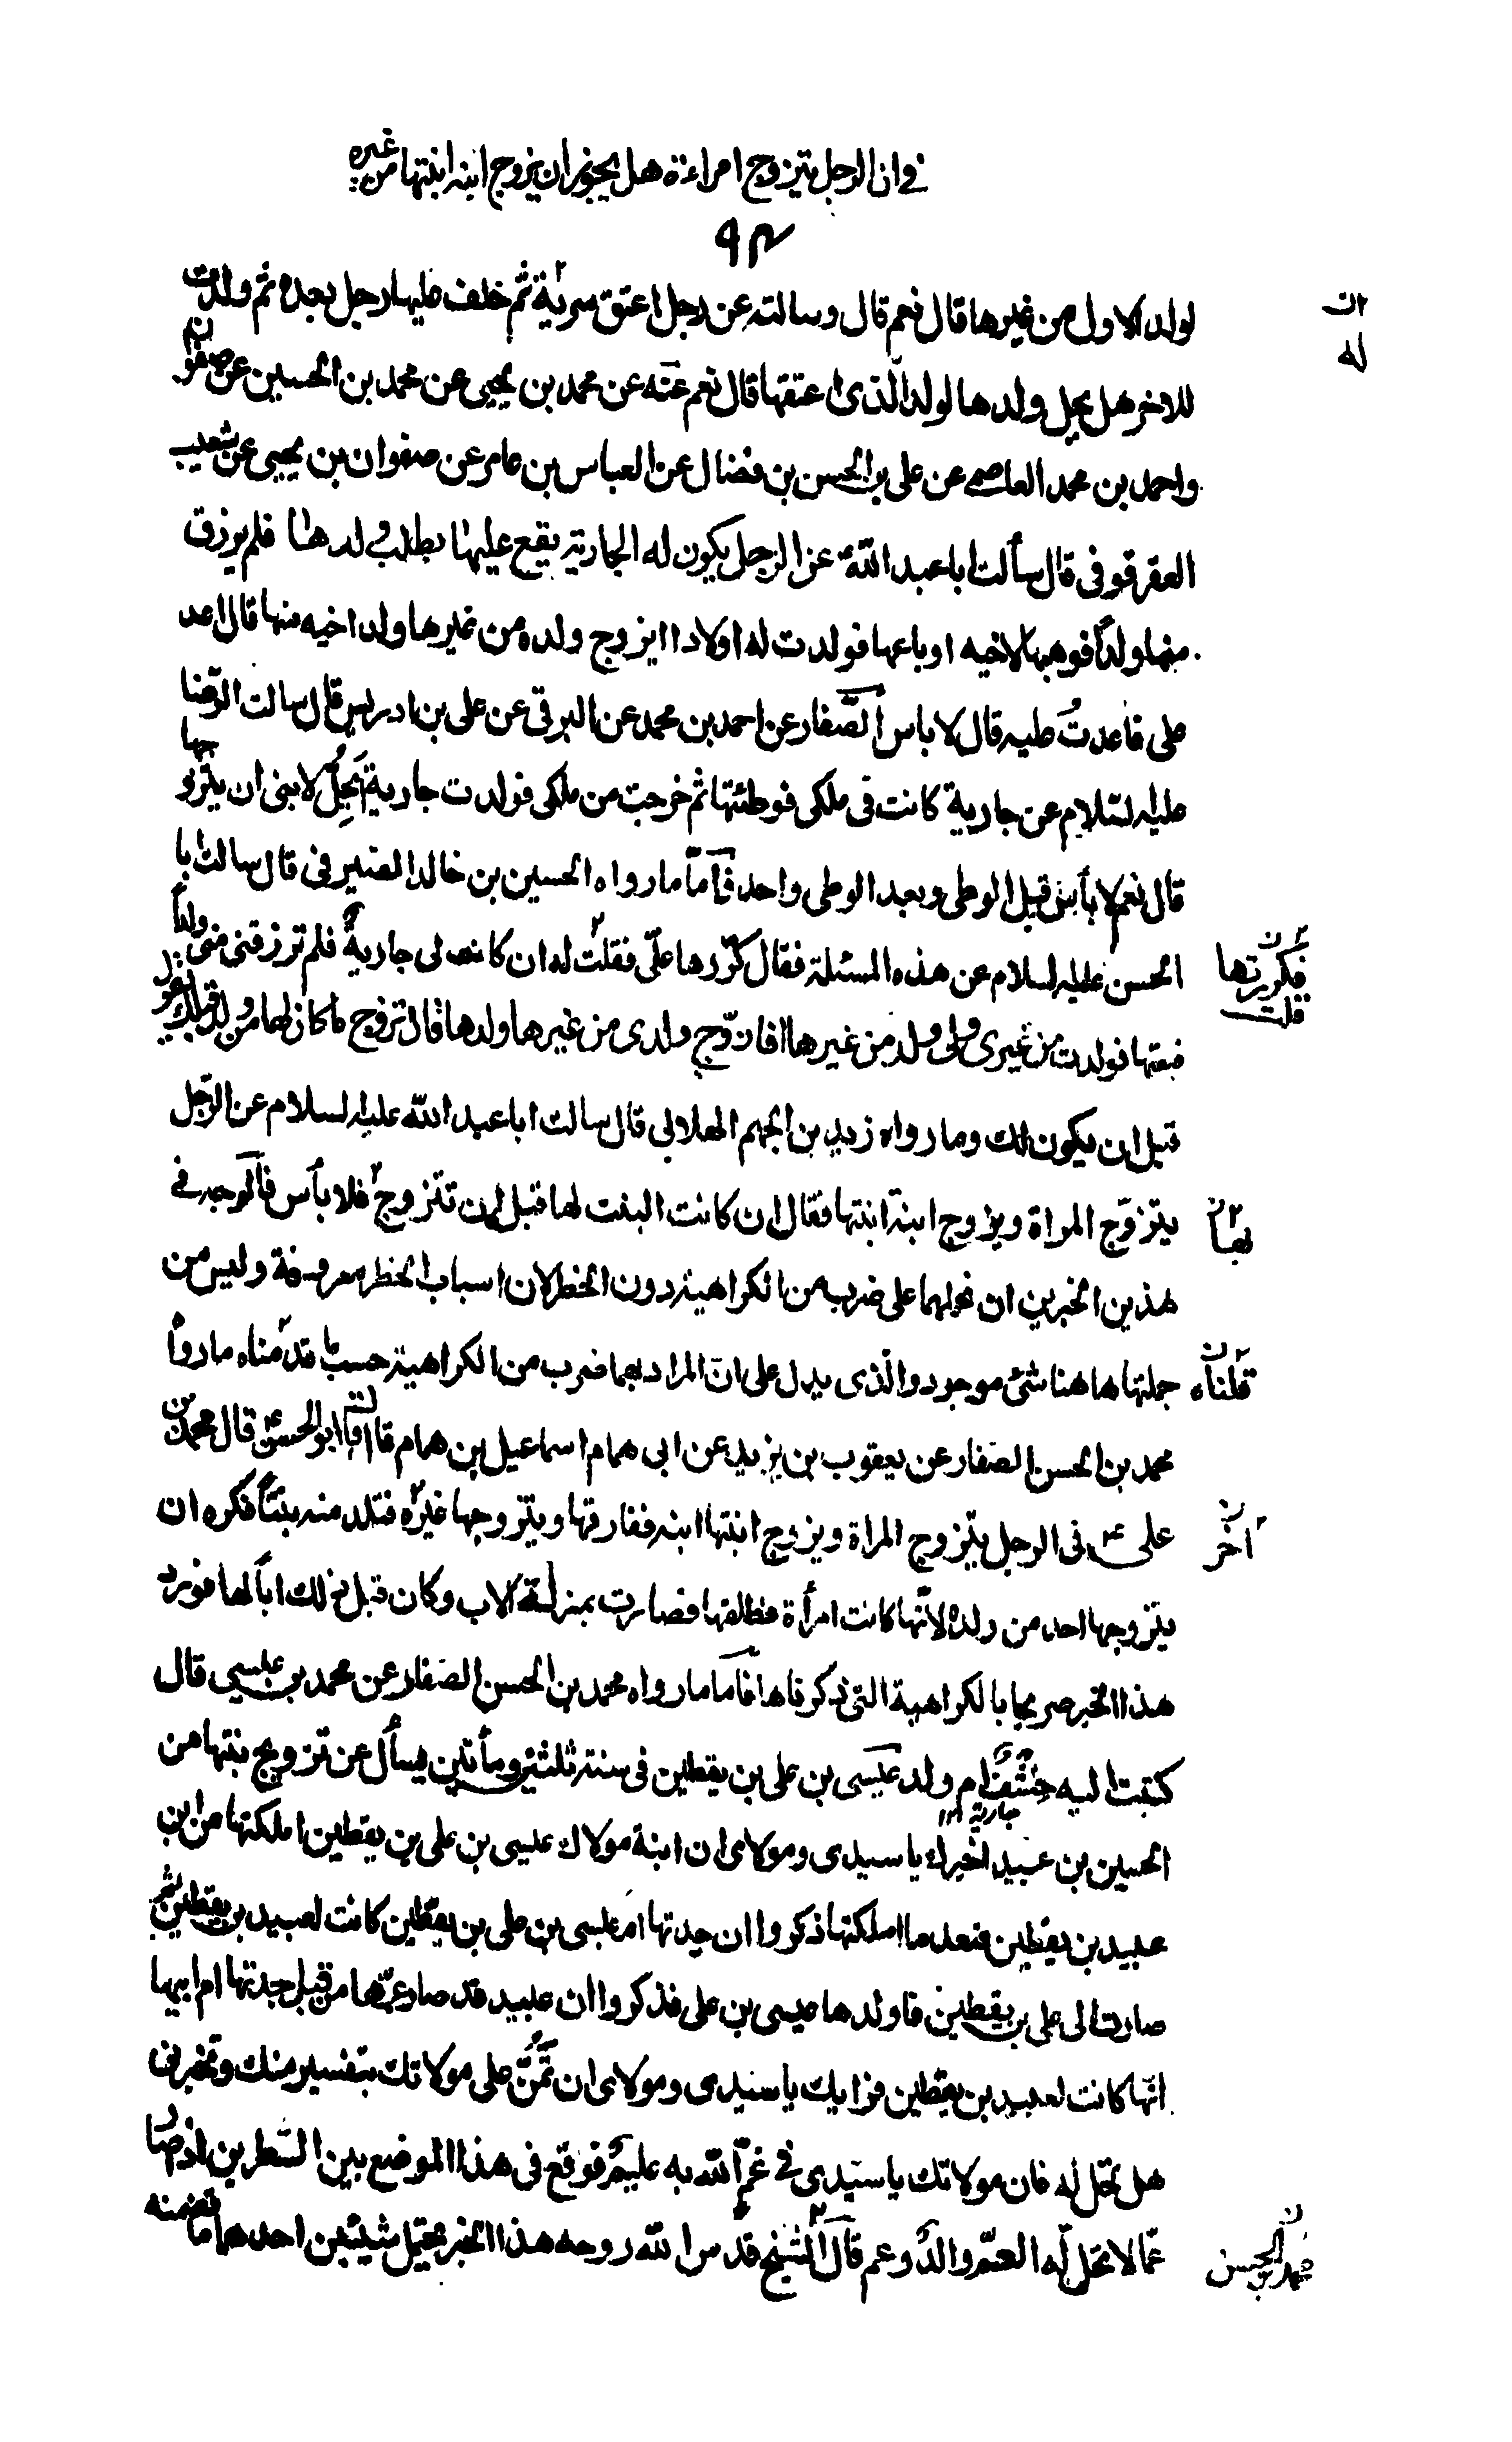 في ان الرجل يتزوج امراءة هل يجوز ان يزوج ابنه ابنتها من غيره
٩٣
لولد الاول من غيرها قال نعم قال وسالته عن رجل اعتق سرية ثم خلف عليها رجل بعده ثم ولدت
للاخر هل يحل ولدها لولد الذى اعتقها قال نعم عنه عن محمد بن يحيى عن محمد بن الحسين عن صفوان
واحمد بن محمد العاصمى عن على بن الحسن بن فضال عن العباس بن عامر عن صفوان بن يحيى عن شعيب
العقرقوفى قال سألت ابا عبد الله ع عن الرجل يكون له الجارية يقع عليها يطلب ولدها فلم يرزق
منها ولدا فوهبها لاخيه او باعها فولدت له اولادا ايزوج ولده من غيرها ولد اخيه منها قال اعد
على فاعدت عليه قال لا باس الصفار عن احمد بن محمد عن البرقى عن على بن ادريس قال سالت الرضا
عليه السلام عن جارية كانت فى ملكى فوطئتها ثم خرجت من ملكى فولدت جارية يحل لابنى ان يتزوجها
قال نعم لا بأس قبل الوطى وبعد الوطى واحد فاما ما رواه الحسين بن خالد الصيرفى قال سالت ابا
الحسن عليه السلام عن هذه المسئلة فقال كررها على فقلت له ان كانت لى جارية فلم ترزق منى ولداً
فبعتها فولدت من غيرى ولى ولد من غيرها افازوج ولدى من غيرها ولدها قال تزوج ما كان لها من ولد قبلك يقول
قبل ان يكون لك وما رواه زيد بن الجهم الهلالى قال سالت ابا عبد الله عليه السلام عن الرجل
يتزوج المراة ويزوج ابنه ابنتها فقال ان كانت البنت لها قبل ان تتزوج فلا بأس فالوجه فى
هذين الخبرين ان نحملهما على ضرب من الكراهية دون الحظر لان اسباب الحظر معروفة وليس من
جملتها هاهنا شئ موجود والذى يدل على ان المراد بهما ضرب من الكراهية حسب ما قدمناه ما رواه
محمد بن الحسن الصفار عن يعقوب بن يزيد عن ابى همام اسماعيل بن همام قال قال ابو الحسن ع قال محمد بن
على ع فى الرجل يتزوج المراة ويزوج ابنتها ابنه ففارقها ويتزوجها غيره فتلد منه بنتاً فكره ان
يتزوجها احد من ولده لانها كانت امرأة فطلقها فصارت بمنزلة الاب وكان قبل ذلك اباً لها فورد
هذا الخبر صريحا بالكراهية التى ذكرناها فاما ما رواه محمد بن الحسن الصفار عن محمد بن عيسى قال
كتبت اليه خشف ام ولد عيسى بن على بن يقطين فى سنة ثلث ومأتين يسأل عن تزويج بنتها من
الحسين بن عبيد اخبرك يا سيدى ومولاى ان ابنة مولاك عيسى بن على بن يقطين املكتها من ابن
عبيد بن يقطين فبعد ما املكتها ذكروا ان جدتها ام عيسى بن على بن يقطين كانت لعبيد بن يقطين ثم
صارت الى على بن يقطين فاولدها عيسى بن على فذكروا ان عبيد قد صار عمها من قبل جدتها ام ابيها
انها كانت لعبيد بن يقطين فرايك يا سيدى ومولاى ان تمن على مولاتك بتفسير منك وتخبرنى
هل تحل له فان مولاتك يا سيدى فى غم الله به عليم فوقع فى هذا الموضع بين السطرين اذا صار
عما لا تحل له العم والد وعم قال الشيخ قدس الله روحه هذا الخبر يحتمل شيئين احدهما ما تضمنه
له
فكررتها
قلت
بها
قلناه
آخر
جارية
محمد بن الحسن